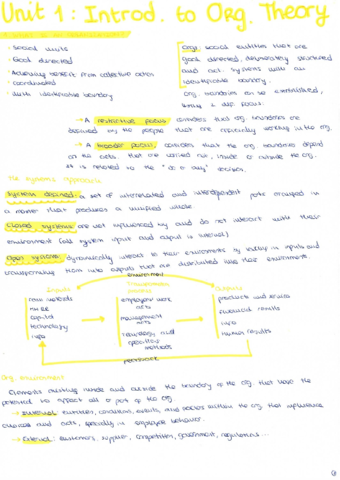 Unit 1: Introd. to Org. Theory
· Social units
· Goal directed
· Achieving benefit from collective action
· Coordinated
· With identifiable boundary
Org: social entities that are
goal directed, deliberately structured
and act. systems with an
identifiable boundary.
Org. boundaries can be
→ A restrictive focus: considers that org. boundaries are
defined by the people that are officially working in the org.
→ A broader focus: considers that the org. boundaries depend
on the acts. that are carried out, inside or outside the org.
It is related to the "do or buy" decision.
The systems approach
System defined: a set of interrelated and interdependent parts arranged in
a manner that produces a unified whole
Closed systems: are not influenced by and do not interact with their
environment (all system input and output is internal)
Open systems: dynamically interact to their environments by taking in inputs and
transforming them into outputs that are distributed into their environments.
Environment
Inputs
raw materials
capital
technology
info
Transformation process
employees' work acts
management acts
technology and operations methods
Outputs
products and services
financial results
info
human results
Feedback
Org. environment
Elements existing inside and outside the boundary of the org. that have the
potential to affect all or part of the org
→ Internal: conditions, events, and factors within the org. that influence
choices and acts, specially in employee behavior.
→ External: customers, suppliers, competitors, government, regulations...